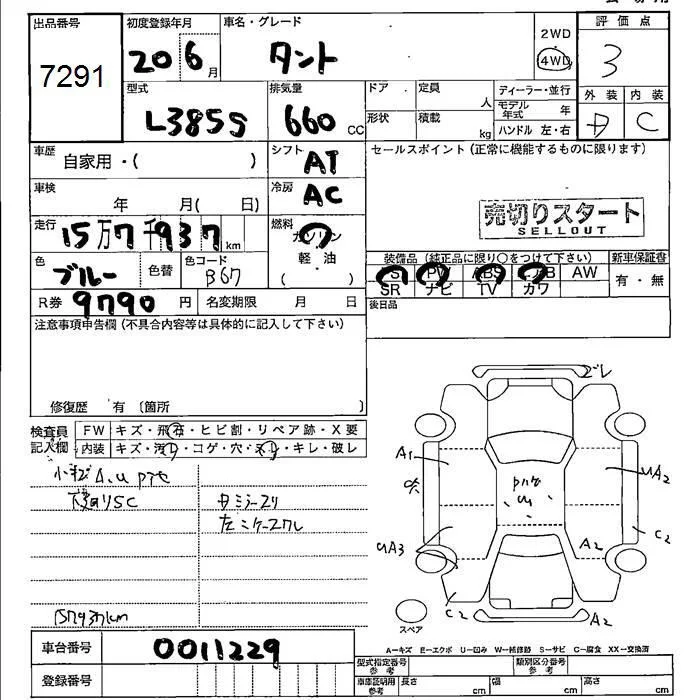 出品番号
7291
初度登録年月
20 6月
車名・グレード
タント
2WD
4WD
評価点
3
外装 内装
D C
型式
L385S
排気量
660 CC
ドア
定員
人
形状
積載
kg
ディーラー・並行
モデル年式 年
ハンドル 左・右
車歴
自家用・( )
シフト
AT
セールスポイント(正常に機能するものに限ります)
車検
年 月( 日)
冷房
AC
売切りスタート
SELLOUT
走行
15万7千937km
燃料
ガソリン
軽・油
( )
色
ブルー
色替
色コード
B67
装備品 (純正品に限り○をつけて下さい)
新車保証書
PS PW ABS エアB AW
SR ナビ TV カワ
有・無
R券 9790 円
名変期限 月 日
後日品
注意事項申告欄(不具合内容等は具体的に記入して下さい)
修復歴 有 〔箇所 〕
検査員記入欄
FW キズ・飛石・ヒビ割・リペア跡・X要
内装 キズ・汚れ・コゲ・穴・スレ・キレ・破レ
小キズA.U
SC
左ミラースレ
157937km
A1
UA3
C2
UA2
C2
A2
A2
スペア
A―キズ E―エクボ U―凹み W―補修跡 S―サビ C―腐食 XX―交換済
車台番号
0011229
登録番号
型式指定番号 参考
類別区分番号 参考
車庫証明用 参考
長さ cm
幅 cm
高さ cm